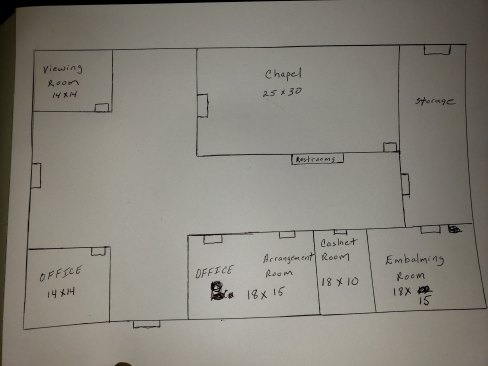 Viewing
Room
14 x 14
Chapel
25 x 30
Storage
Restrooms
OFFICE
14 x 14
OFFICE
Arrangement
Room
18 x 15
Casket
Room
18 x 10
Embalming
Room
18 x
15